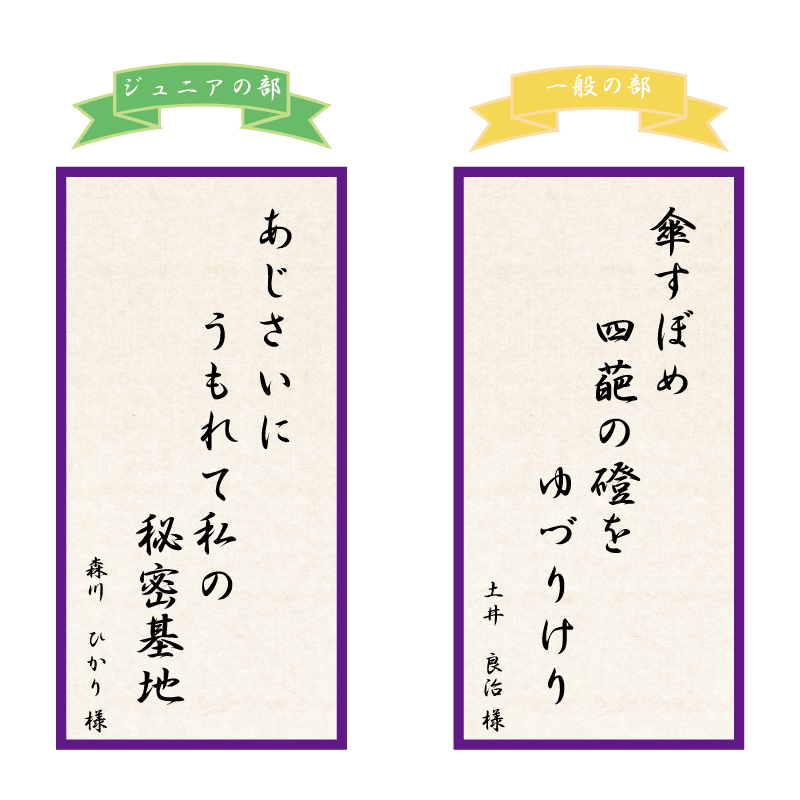 ジュニアの部
あじさいに
うもれて私の
秘密基地
森川 ひかり様
一般の部
傘すぼめ
四葩の磴を
ゆづりけり
土井 良治様